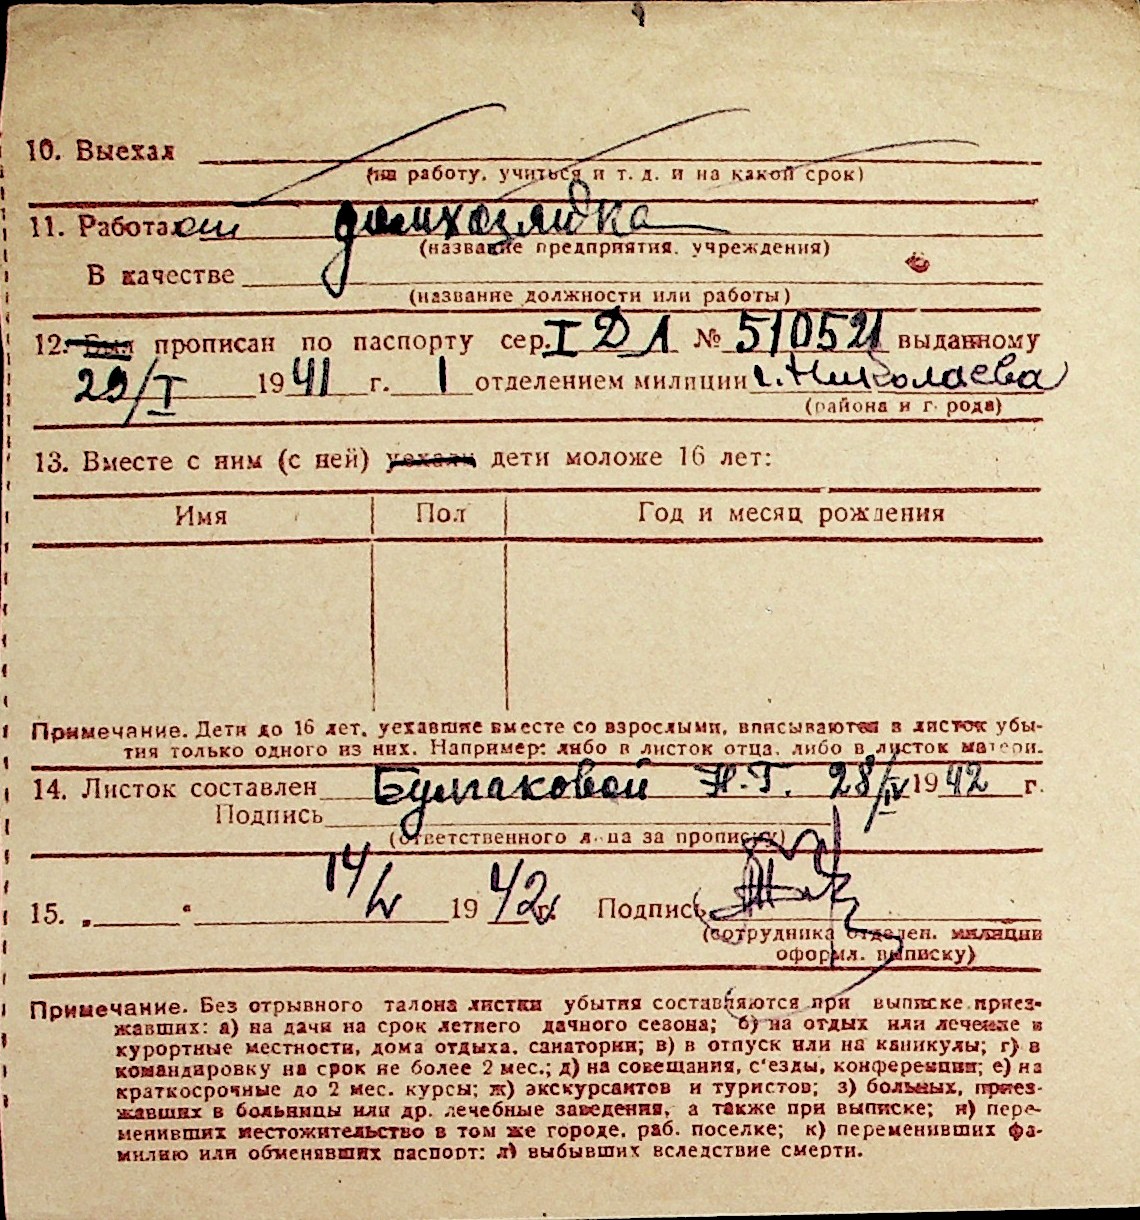 10. Выехал
(на работу, учиться и т. д. и на какой срок)
11. Работал домхозяйка
(название предприятия, учреждения)
В качестве
(название должности или работы)
12. Был прописан по паспорту сер. I ДЛ № 510521 выданному
29/I 1941 г. 1 отделением милиции г. Николаева
(района и города)
13. Вместе с ним (с ней) уехали дети моложе 16 лет:
Имя Пол Год и месяц рождения
Примечание. Дети до 16 лет, уехавшие вместе со взрослыми, вписываются в листок убы-
тия только одного из них. Например: либо в листок отца, либо в листок матери.
14. Листок составлен Булгаковой Н.Г. 28/IV 1942 г.
Подпись
(ответственного лица за прописку)
15. „ “ 14/V 1942 г. Подпись
(сотрудника отделен. милиции
оформл. выписку)
Примечание. Без отрывного талона листки убытия составляются при выписке приез-
жавших: а) на дачи на срок летнего дачного сезона; б) на отдых или лечение в
курортные местности, дома отдыха, санатории; в) в отпуск или на каникулы; г) в
командировку на срок не более 2 мес.; д) на совещания, с'езды, конференции; е) на
краткосрочные до 2 мес. курсы; ж) экскурсантов и туристов; з) больных, приез-
жавших в больницы или др. лечебные заведения, а также при выписке; и) пере-
менивших местожительство в том же городе, раб. поселке; к) переменивших фа-
милию или обменявших паспорт; л) выбывших вследствие смерти.